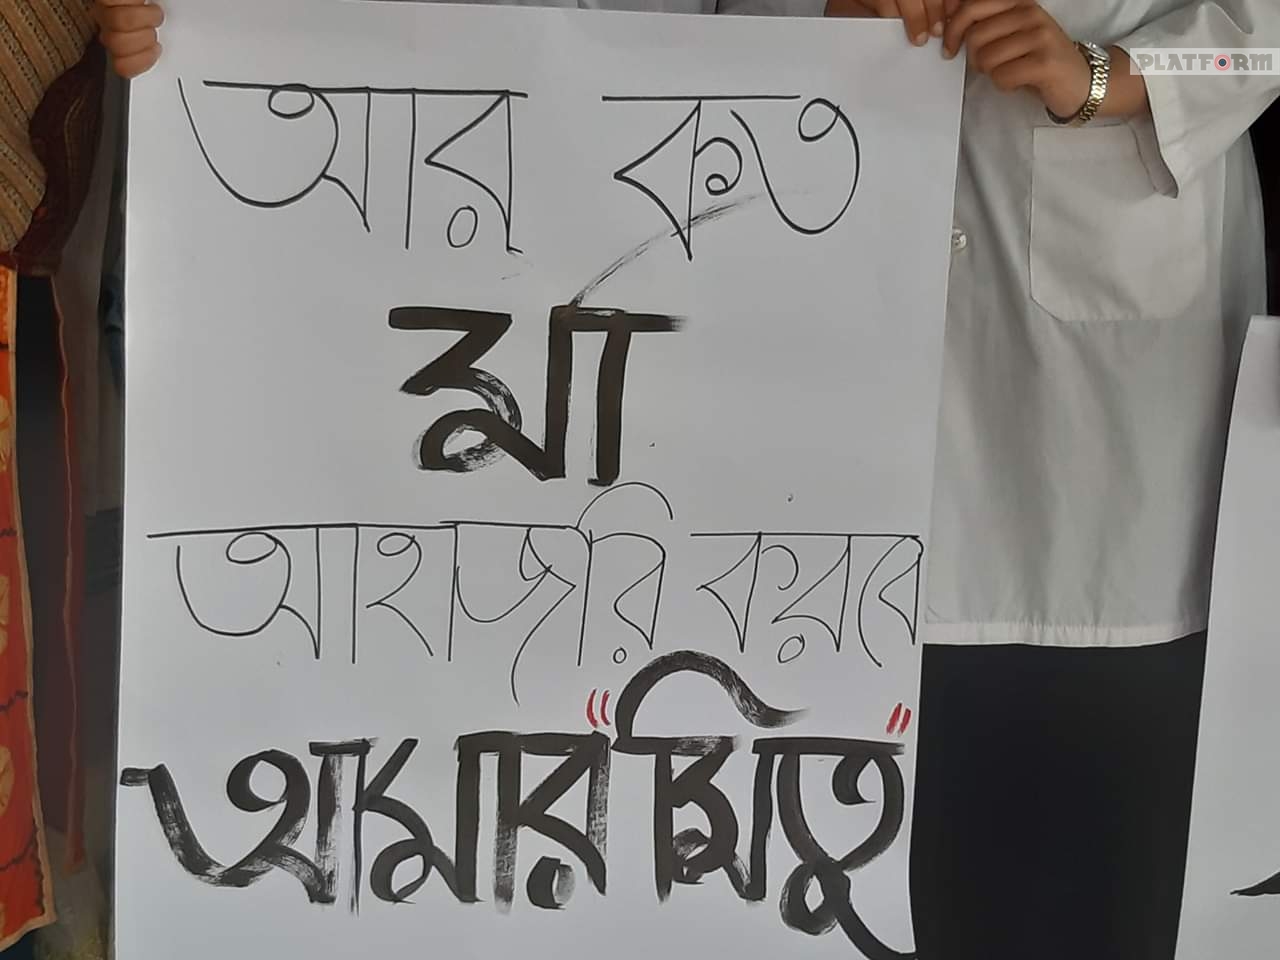 PLATFORM
আর কত
মা
আহাজারি করবে
আমার "মিতু"